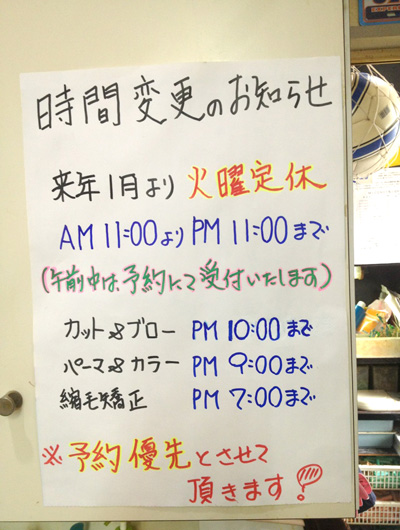 時間変更のお知らせ
来年1月より 火曜定休
AM 11:00より PM 11:00まで
(午前中は予約にて受付いたします)
カット&ブロー PM 10:00まで
パーマ&カラー PM 9:00まで
縮毛矯正 PM 7:00まで
※予約優先とさせて
頂きます!